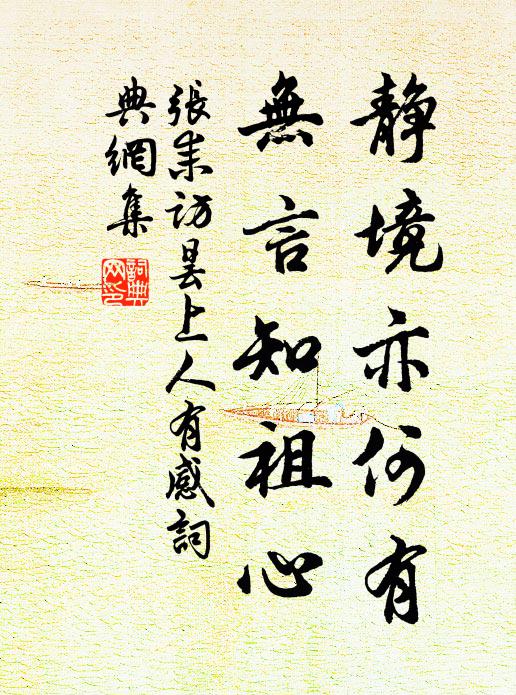 靜境亦何有
無言知祖心
張耒訪曇上人有感詞
典網集
詞典
网印